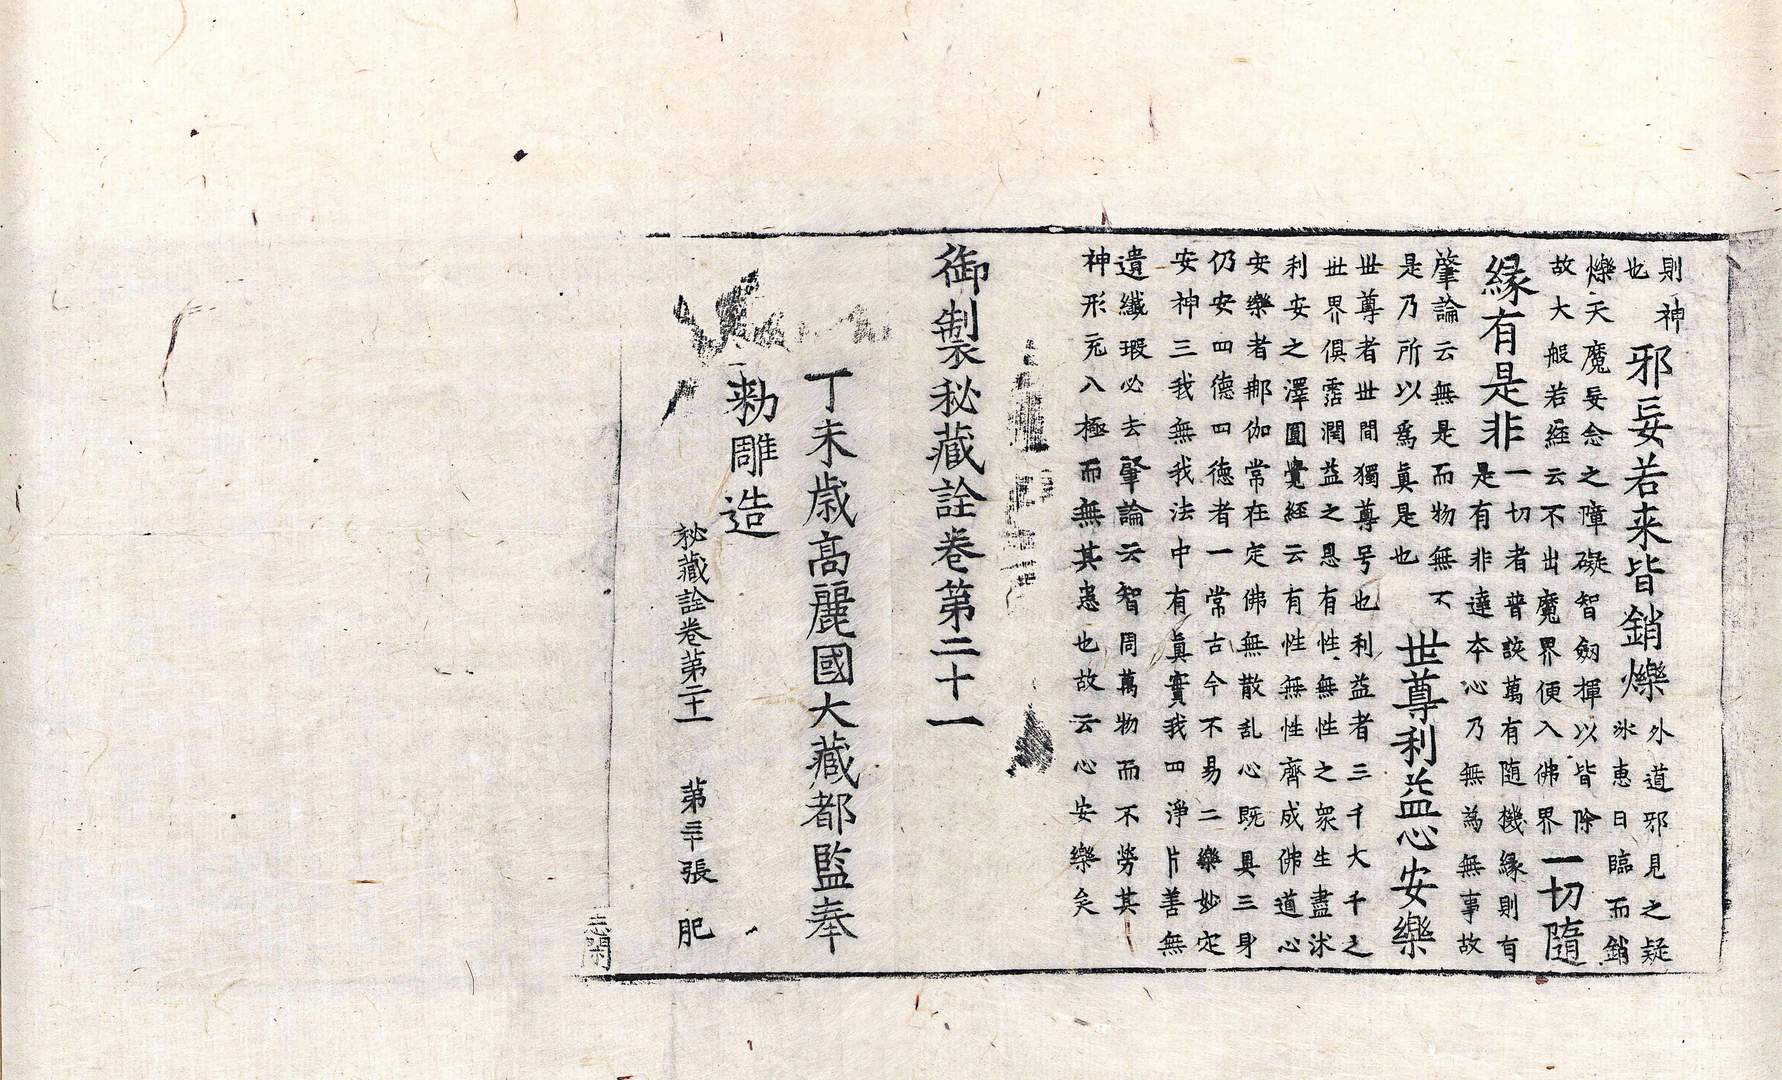 則神
也
邪妄若来皆銷爍
外道邪見之疑
氷惠日臨而銷
爍天魔妄念之障礙智劒揮以皆除
故大般若経云不出魔界便入佛界
一切隨
縁有是非
一切者普該萬有随機縁則有
是有非達夲心乃無為無事故
肇論云無是而物無不
是乃所以爲真是也
世尊利益心安樂
世尊者世間獨尊号也利益者三千大千之
世界俱霑潤益之恩有性無性之衆生盡沐
利安之澤圓覺経云有性無性齊成佛道心
安樂者那伽常在定佛無散乱心既具三身
仍安四德四德者一常古今不易二樂妙定
安神三我無我法中有真實我四淨片善無
遺纖瑕必去肇論云智周萬物而不勞其
神形充八極而無其患也故云心安樂矣
御製秘藏詮卷第二十一
丁未歲高麗國大藏都監奉
勑雕造
秘藏詮卷第二十一 苐 張 肥